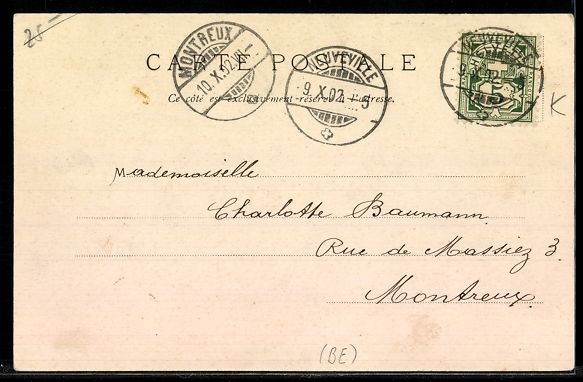 25-
MONTREUX
10.X.02.VI-
NEUVEVILLE
9.X.02.-5
NEUVEVILLE
CARTE POSTALE
Ce côté est exclusivement réservé à l'adresse.
K
Mademoiselle
Charlotte Baumann
Rue de Massiez 3.
Montreux
(BE)